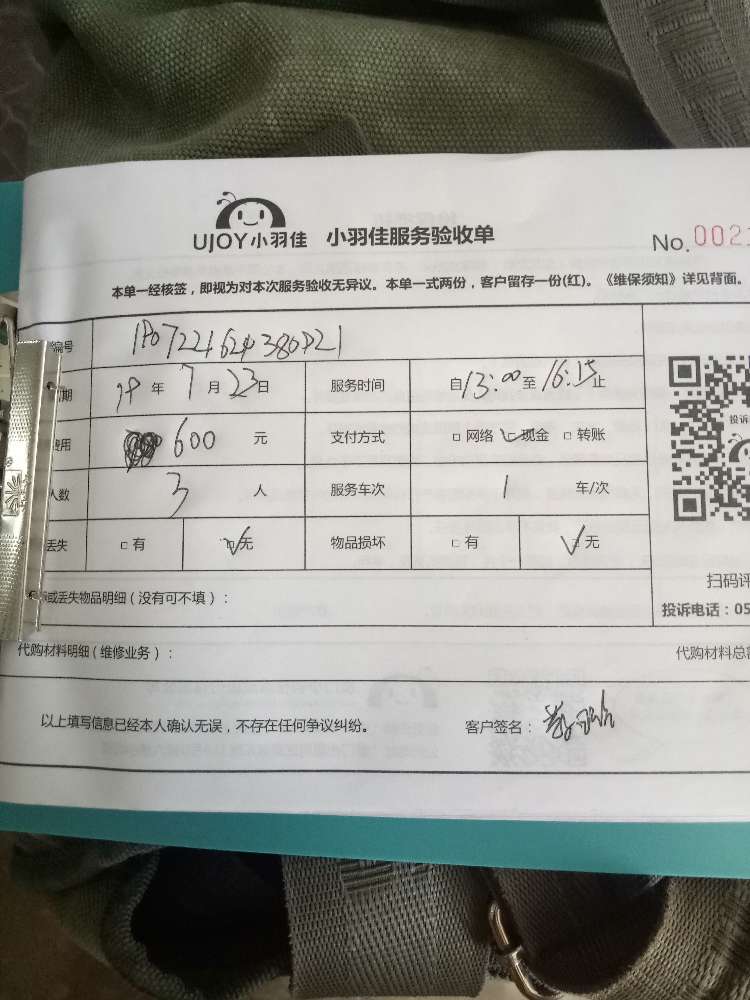 UJOY小羽佳 小羽佳服务验收单
No. 002
本单一经核签，即视为对本次服务验收无异议。本单一式两份，客户留存一份(红)。《维保须知》详见背面。
编号
期 年 7 月 23 日 服务时间 自 13:00 至 16:15 止
费用 600 元 支付方式 □ 网络 ✓ 现金 □ 转账
人数 3 人 服务车次 1 车/次
丢失 □ 有 ✓ 无 物品损坏 □ 有 ✓ 无
投诉
或丢失物品明细（没有可不填）：
扫码评
投诉电话：05
代购材料明细（维修业务）： 代购材料总
以上填写信息已经本人确认无误，不存在任何争议纠纷。 客户签名：